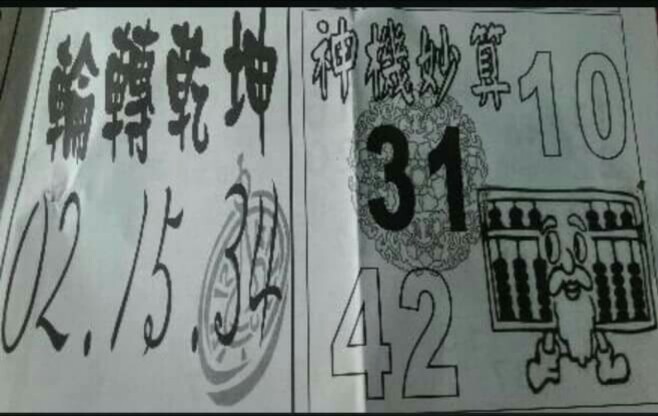 輪轉乾坤
02.15.34
神機妙算
10
31
42